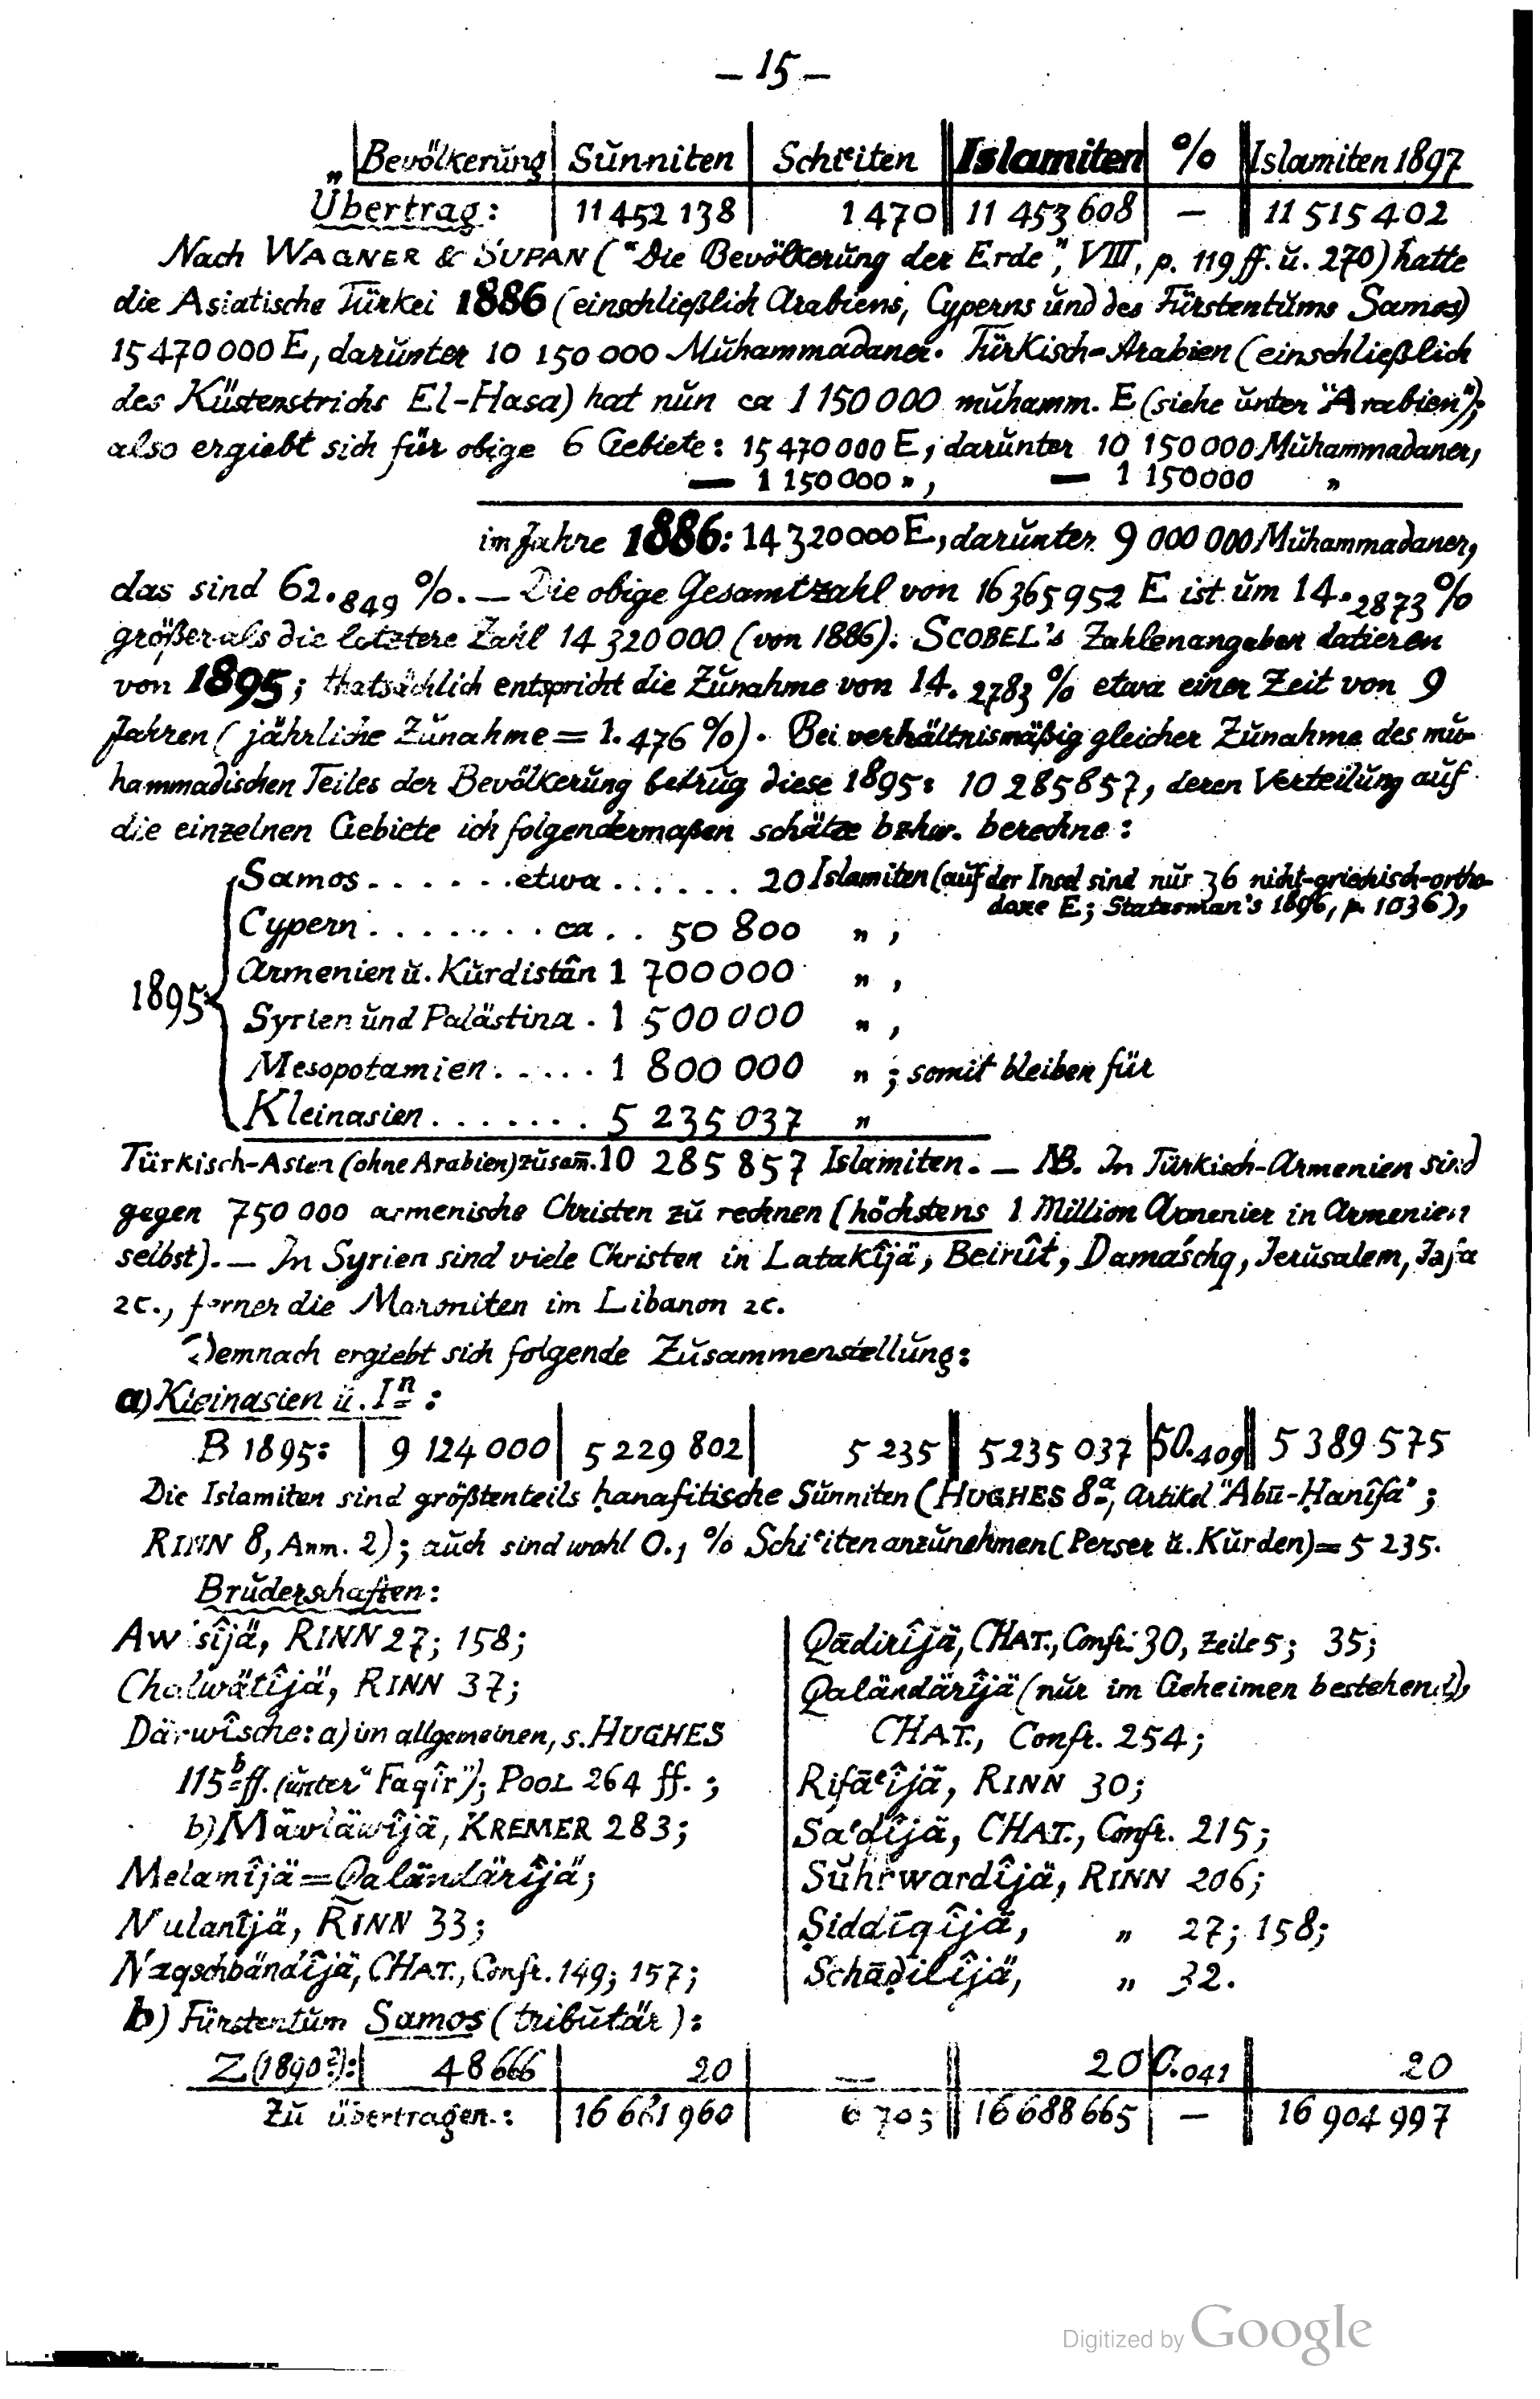 – 15 –
Bevölkerŭng | Sŭnniten | Schiʿiten | Islamiten | % | Islamiten 1897
Übertrag: | 11 452 138 | 1 470 | 11 453 608 | – | 11 515 402
Nach WAGNER & SUPAN ("Die Bevölkerŭng der Erde", VIII, p. 119 ff. ŭ. 270) hatte
die Asiatische Türkei 1886 (einschließlich Arabiens, Cyperns ŭnd des Fürstentŭms Samos)
15 470 000 E, darŭnter 10 150 000 Mŭhammadaner. Türkisch-Arabien (einschließlich
des Küstenstrichs El-Hasa) hat nŭn ca 1 150 000 mŭhamm. E (siehe ŭnter "Arabien");
also ergiebt sich für obige 6 Gebiete: 15 470 000 E, darŭnter 10 150 000 Mŭhammadaner,
— 1 150 000 „ , — 1 150 000 „
im Jahre 1886: 14 320 000 E, darŭnter 9 000 000 Mŭhammadaner,
das sind 62.849 %. — Die obige Gesamtzahl von 16 365 952 E ist ŭm 14.2873 %
größer als die letztere Zahl 14 320 000 (von 1886). SCOBEL's Zahlenangaben datieren
von 1895; thatsächlich entspricht die Zŭnahme von 14.2783 % etwa einer Zeit von 9
Jahren (jährliche Zŭnahme = 1.476 %). Bei verhältnismäßig gleicher Zŭnahme des mŭ-
hammadischen Teiles der Bevölkerŭng betrŭg diese 1895: 10 285 857, deren Verteilŭng aŭf
die einzelnen Gebiete ich folgendermaßen schätze bzhw. berechne:
Samos . . . . . . etwa . . . . . . 20 Islamiten (aŭf der Insel sind nŭr 36 nicht-griechisch-ortho-
doxe E; Statesman's 1896, p. 1036),
Cypern . . . . . . . . ca . . 50 800 „ ,
Armenien ŭ. Kŭrdistân 1 700 000 „ ,
1895:
Syrien ŭnd Palästina . 1 500 000 „ ,
Mesopotamien . . . . . 1 800 000 „ ; somit bleiben für
Kleinasien . . . . . . . 5 235 037 „
Türkisch-Asien (ohne Arabien) zŭsam̄. 10 285 857 Islamiten. — NB. In Türkisch-Armenien sind
gegen 750 000 armenische Christen zŭ rechnen (höchstens 1 Million Armenier in Armenien
selbst). — In Syrien sind viele Christen in Latakîjä, Beirût, Damaschq, Jerŭsalem, Jafa
2c., ferner die Maroniten im Libanon 2c.
Demnach ergiebt sich folgende Zŭsammenstellŭng:
a) Kleinasien ŭ. In:
B 1895: | 9 124 000 | 5 229 802 | 5 235 | 5 235 037 | 50.409 | 5 389 575
Die Islamiten sind größtenteils ḥanafitische Sŭnniten (HUGHES 8a, Artikel "Abū-Ḥanîfa";
RINN 8, Anm. 2); aŭch sind wohl 0.1 % Schiʿiten anzŭnehmen (Perser ŭ. Kŭrden) = 5 235.
Brŭderschaften:
Aw sîjä, RINN 27; 158;
Chalwätîjä, RINN 37;
Därwîsche: a) im allgemeinen, s. HUGHES
115b ff. (ŭnter "Faqîr"); POOL 264 ff. ;
b) Mäwläwîjä, KREMER 283;
Melamîjä = Qaländärîjä;
Nulanîjä, RINN 33;
Naqschbändîjä, CHAT., Confr. 149; 157;
Qādirîjä, CHAT., Confr. 30, Zeile 5; 35;
Qaländärîjä (nŭr im Geheimen bestehend),
CHAT., Confr. 254;
Rifāʿîjä, RINN 30;
Saʿdîjä, CHAT., Confr. 215;
Sŭhrwardîjä, RINN 206;
Ṣiddīqîjä, „ 27; 158;
Schāḍilîjä, „ 32.
b) Fürstentŭm Samos (tribŭtär):
Z (1890?): | 48 666 | 20 | — | 20 | 0.041 | 20
Zŭ übertragen.: | 16 681 960 | 6 705 | 16 688 665 | – | 16 904 997
Digitized by Google